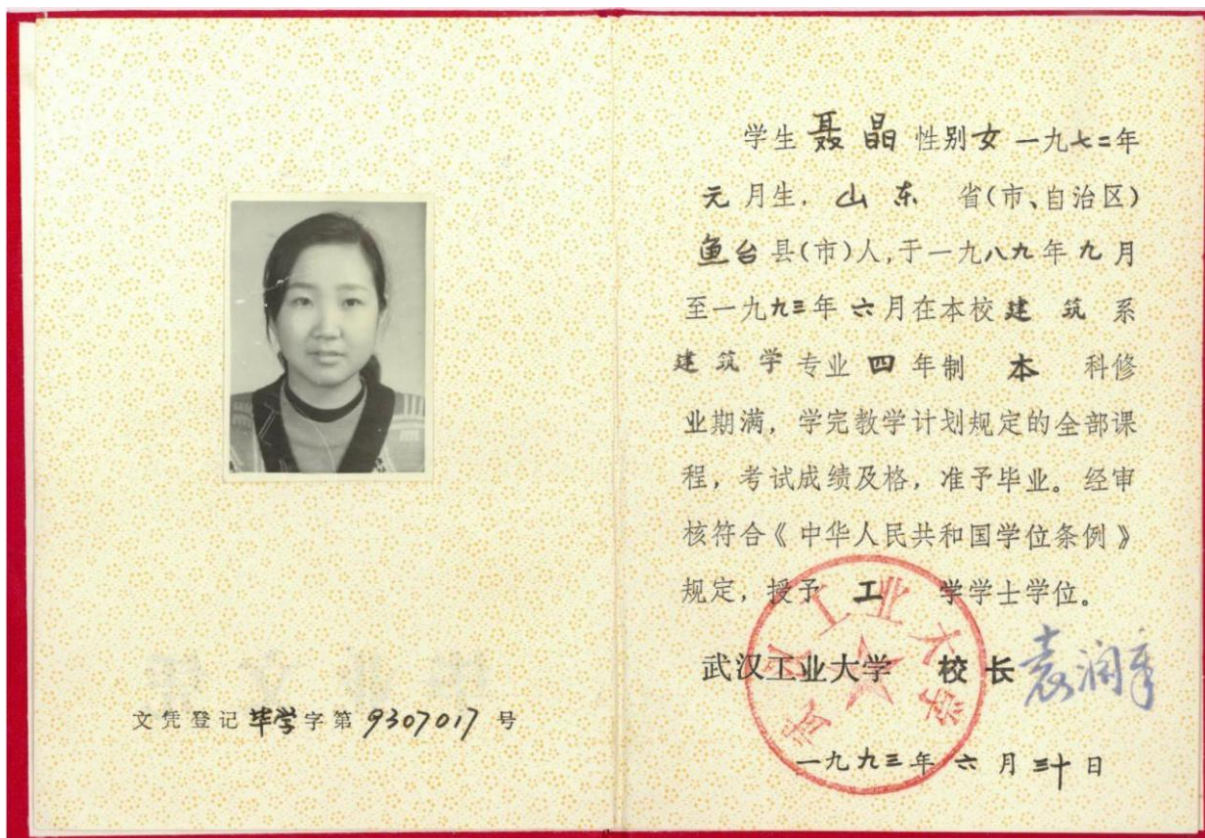 文凭登记毕学字第9307017号
学生聂晶性别女一九七二年
元月生.山东省(市、自治区)
鱼台县(市)人,于一九八九年九月
至一九九三年六月在本校建筑系
建筑学专业四年制本科修
业期满,学完教学计划规定的全部课
程,考试成绩及格,准予毕业。经审
核符合《中华人民共和国学位条例》
规定,授予工学学士学位。
武汉工业大学
武汉工业大学 校长 袁润章
一九九三年六月三十日